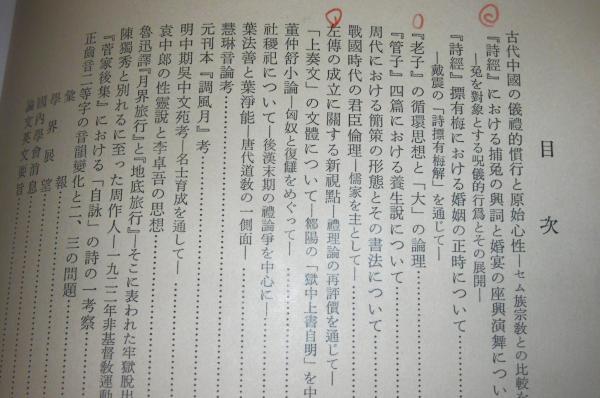 目次
古代中國の儀禮的慣行と原始心性―セム族宗教との比較を
『詩經』における捕兔の興詞と婚宴の座興演舞につい
―兔を對象とする呪儀的行爲とその展開―
『詩經』摽有梅における婚姻の正時について
―戴震の「詩摽有梅解」を通じて―
『老子』の循環思想と「大」の論理
『管子』四篇における養生說について
周代における簡策の形態とその書法について
戰國時代の君臣倫理―儒家を主として―
左傳の成立に關する新視點―禮理論の再評價を通して―
「上奏文」の文體について―鄒陽の「獄中上書自明」を中
董仲舒小論―匈奴と復讎をめぐって―
社稷祀について―後漢末期の禮論爭を中心に―
葉法善と葉淨能―唐代道敎の一側面―
慧琳音論考
元刊本『調風月』考
明中期吳中文苑考―名士育成を通して―
袁中郎の性靈說と李卓吾の思想
魯迅譯『月界旅行』と『地底旅行』―そこに表われた牢獄脫出
陳獨秀と別れるに至った周作人―一九二二年非基督敎運動
『菅家後集』における「自詠」の詩の一考察
正齒音二等字の音韻變化と二、三の問題
彙報
學界展望
國內學會消息
論文英文要旨